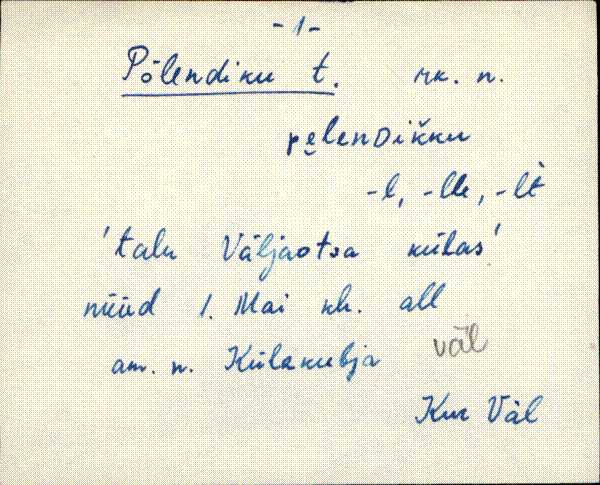 -1-
Põlendiku t. rk. n.
pe̮lenDikku
-l, -lle, -lt
'talu Väljaotsa külas'
nüüd 1. Mai kh. all
am. n. Külakubja väl
Kur Väl